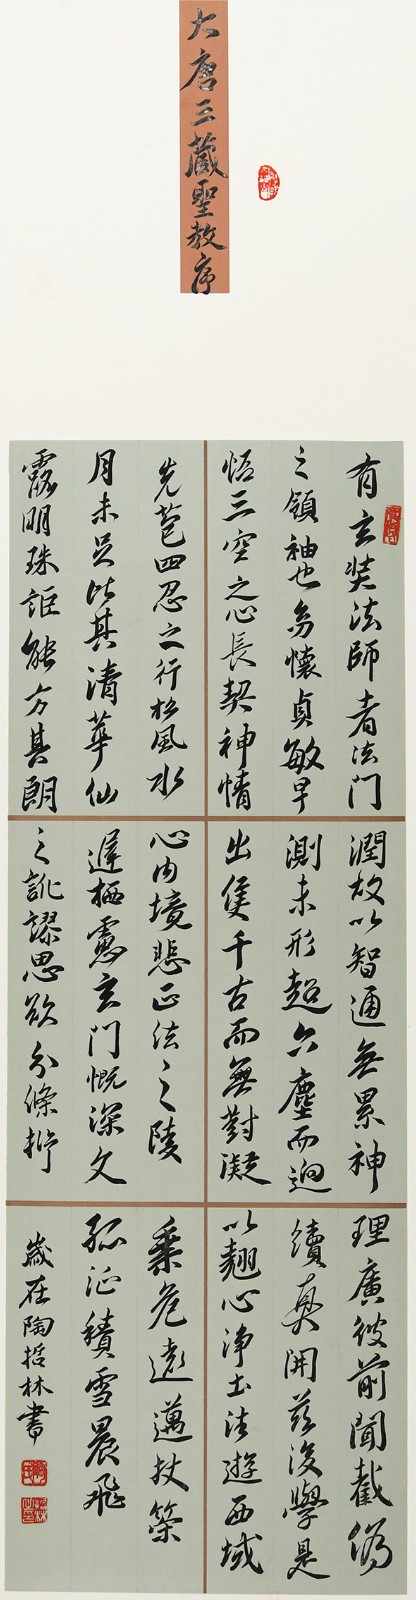 大唐三藏聖教序
有玄奘法師者法門
之領袖也幼懷貞敏早
悟三空之心長契神情
先苞四忍之行松風水
月未足比其清華仙
露明珠詎能方其朗
潤故以智通無累神
測未形超六塵而迥
出隻千古而無對凝
心內境悲正法之陵
遲栖慮玄門慨深文
之訛謬思欲分條析
理廣彼前聞截偽
續真開茲後學是
以翹心淨土法遊西域
乘危遠邁杖策
孤征積雪晨飛
歲在陶哲林書